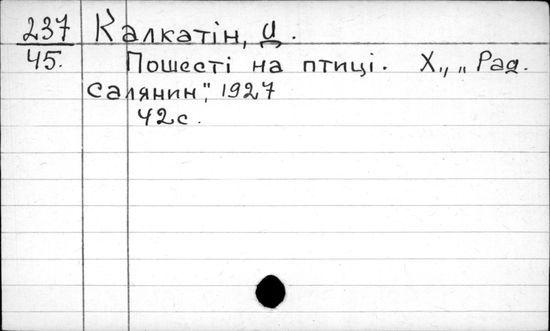 237 Калкатін, Ц.
45. Пошесті на птиці. Х., „Рад.
Салянин", 1927
42 с.